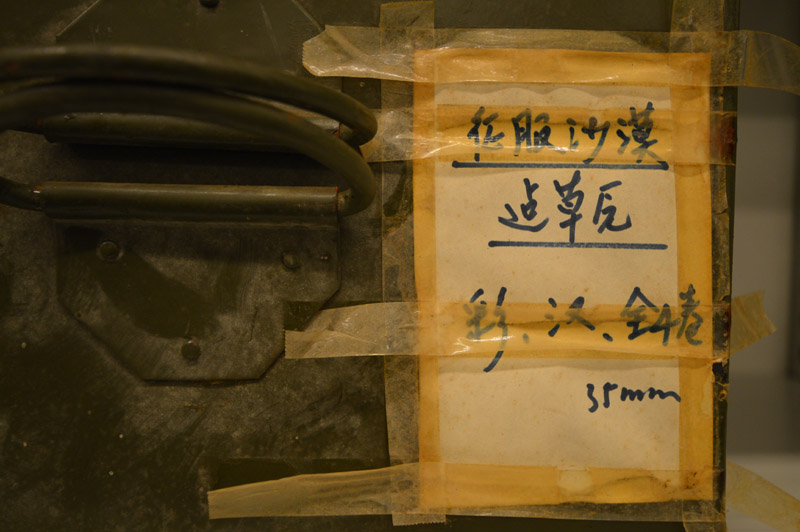 征服沙漠
造草瓦
彩、汉、全4卷
35mm